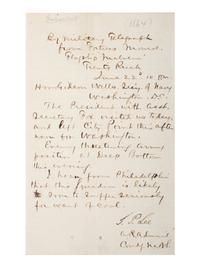 (1864)
By Military Telegraph
from Fortress Monroe
Flagship Malvern
Trents Reach
June 22nd 10 Am
Hon Gideon Welles, Secy of Navy
Washington D.C.
The President with Asst
Secretary Fox visited us today
and left City Point this after
noon for Washington.
Enemy threatening army
position at Deep Bottom
this evening
I hear from Philadelphia
that this squadron is likely
soon to suffer seriously
for want of coal.
S. P. Lee
a R Admiral
Comdg NABS